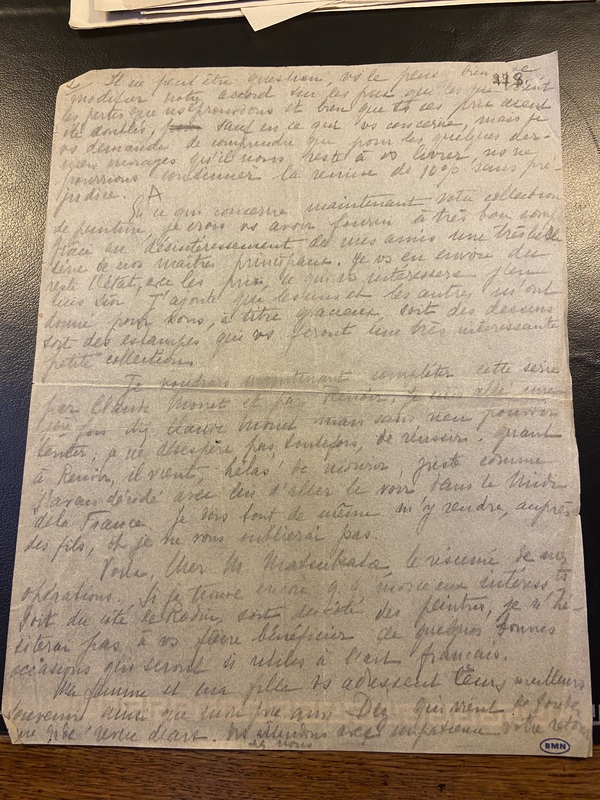 Il ne peut être question, vs le pensez bien, de 338
modifier notre accord sur les prix quelles que soient
les pertes que ns éprouvons et bien que ts ces prix aient
été doublés, sauf en ce qui vs concerne, mais je
vs demande de comprendre que pour les quelques der-
niers ouvrages qu'il nous reste à vs livrer, ns ne
pourrions continuer la remise de 10% sans pré-
judice. A
En ce qui concerne maintenant votre collection
de peinture, je crois vs avoir fourni à très bon compte
grâce au désintéressement de mes amis une très belle
série de nos maîtres principaux. Je vs en envoie du
reste l'état, avec les prix, ce qui vs intéressera
J'ajoute que les uns et les autres m'ont
donné pour vous, à titre gracieux, soit des dessins
soit des estampes, que vs feront une très intéressante
petite collection.
Je voudrais maintenant compléter cette série
par Claude Monet et par Renoir. Je suis allé
Monet mais sans rien pouvoir
tenter, je ne désespère pas, toutefois, de réussir. quant
à Renoir, il vient, hélas! de mourir, juste comme
j'avais décidé avec lui d'aller le voir dans le Midi
de la France. Je vais tout de même m'y rendre, auprès
des fils, et je ne vous oublierai pas.
Voilà, Cher M. Matsukata, le résumé de mes
opérations. Si je trouve encore q.q. morceaux intéressts
soit du côté de Rodin, soit du côté des peintres, je n'hé-
siterai pas à vs faire bénéficier de quelques bonnes
occasions qui seront si utiles à l'art français.
Ma femme et ma fille vs adressent leurs meilleurs
souvenirs ainsi que mon ami Dez qui vient de fonder
une revue d'art. Ns attendons avec impatience votre retour
BMN